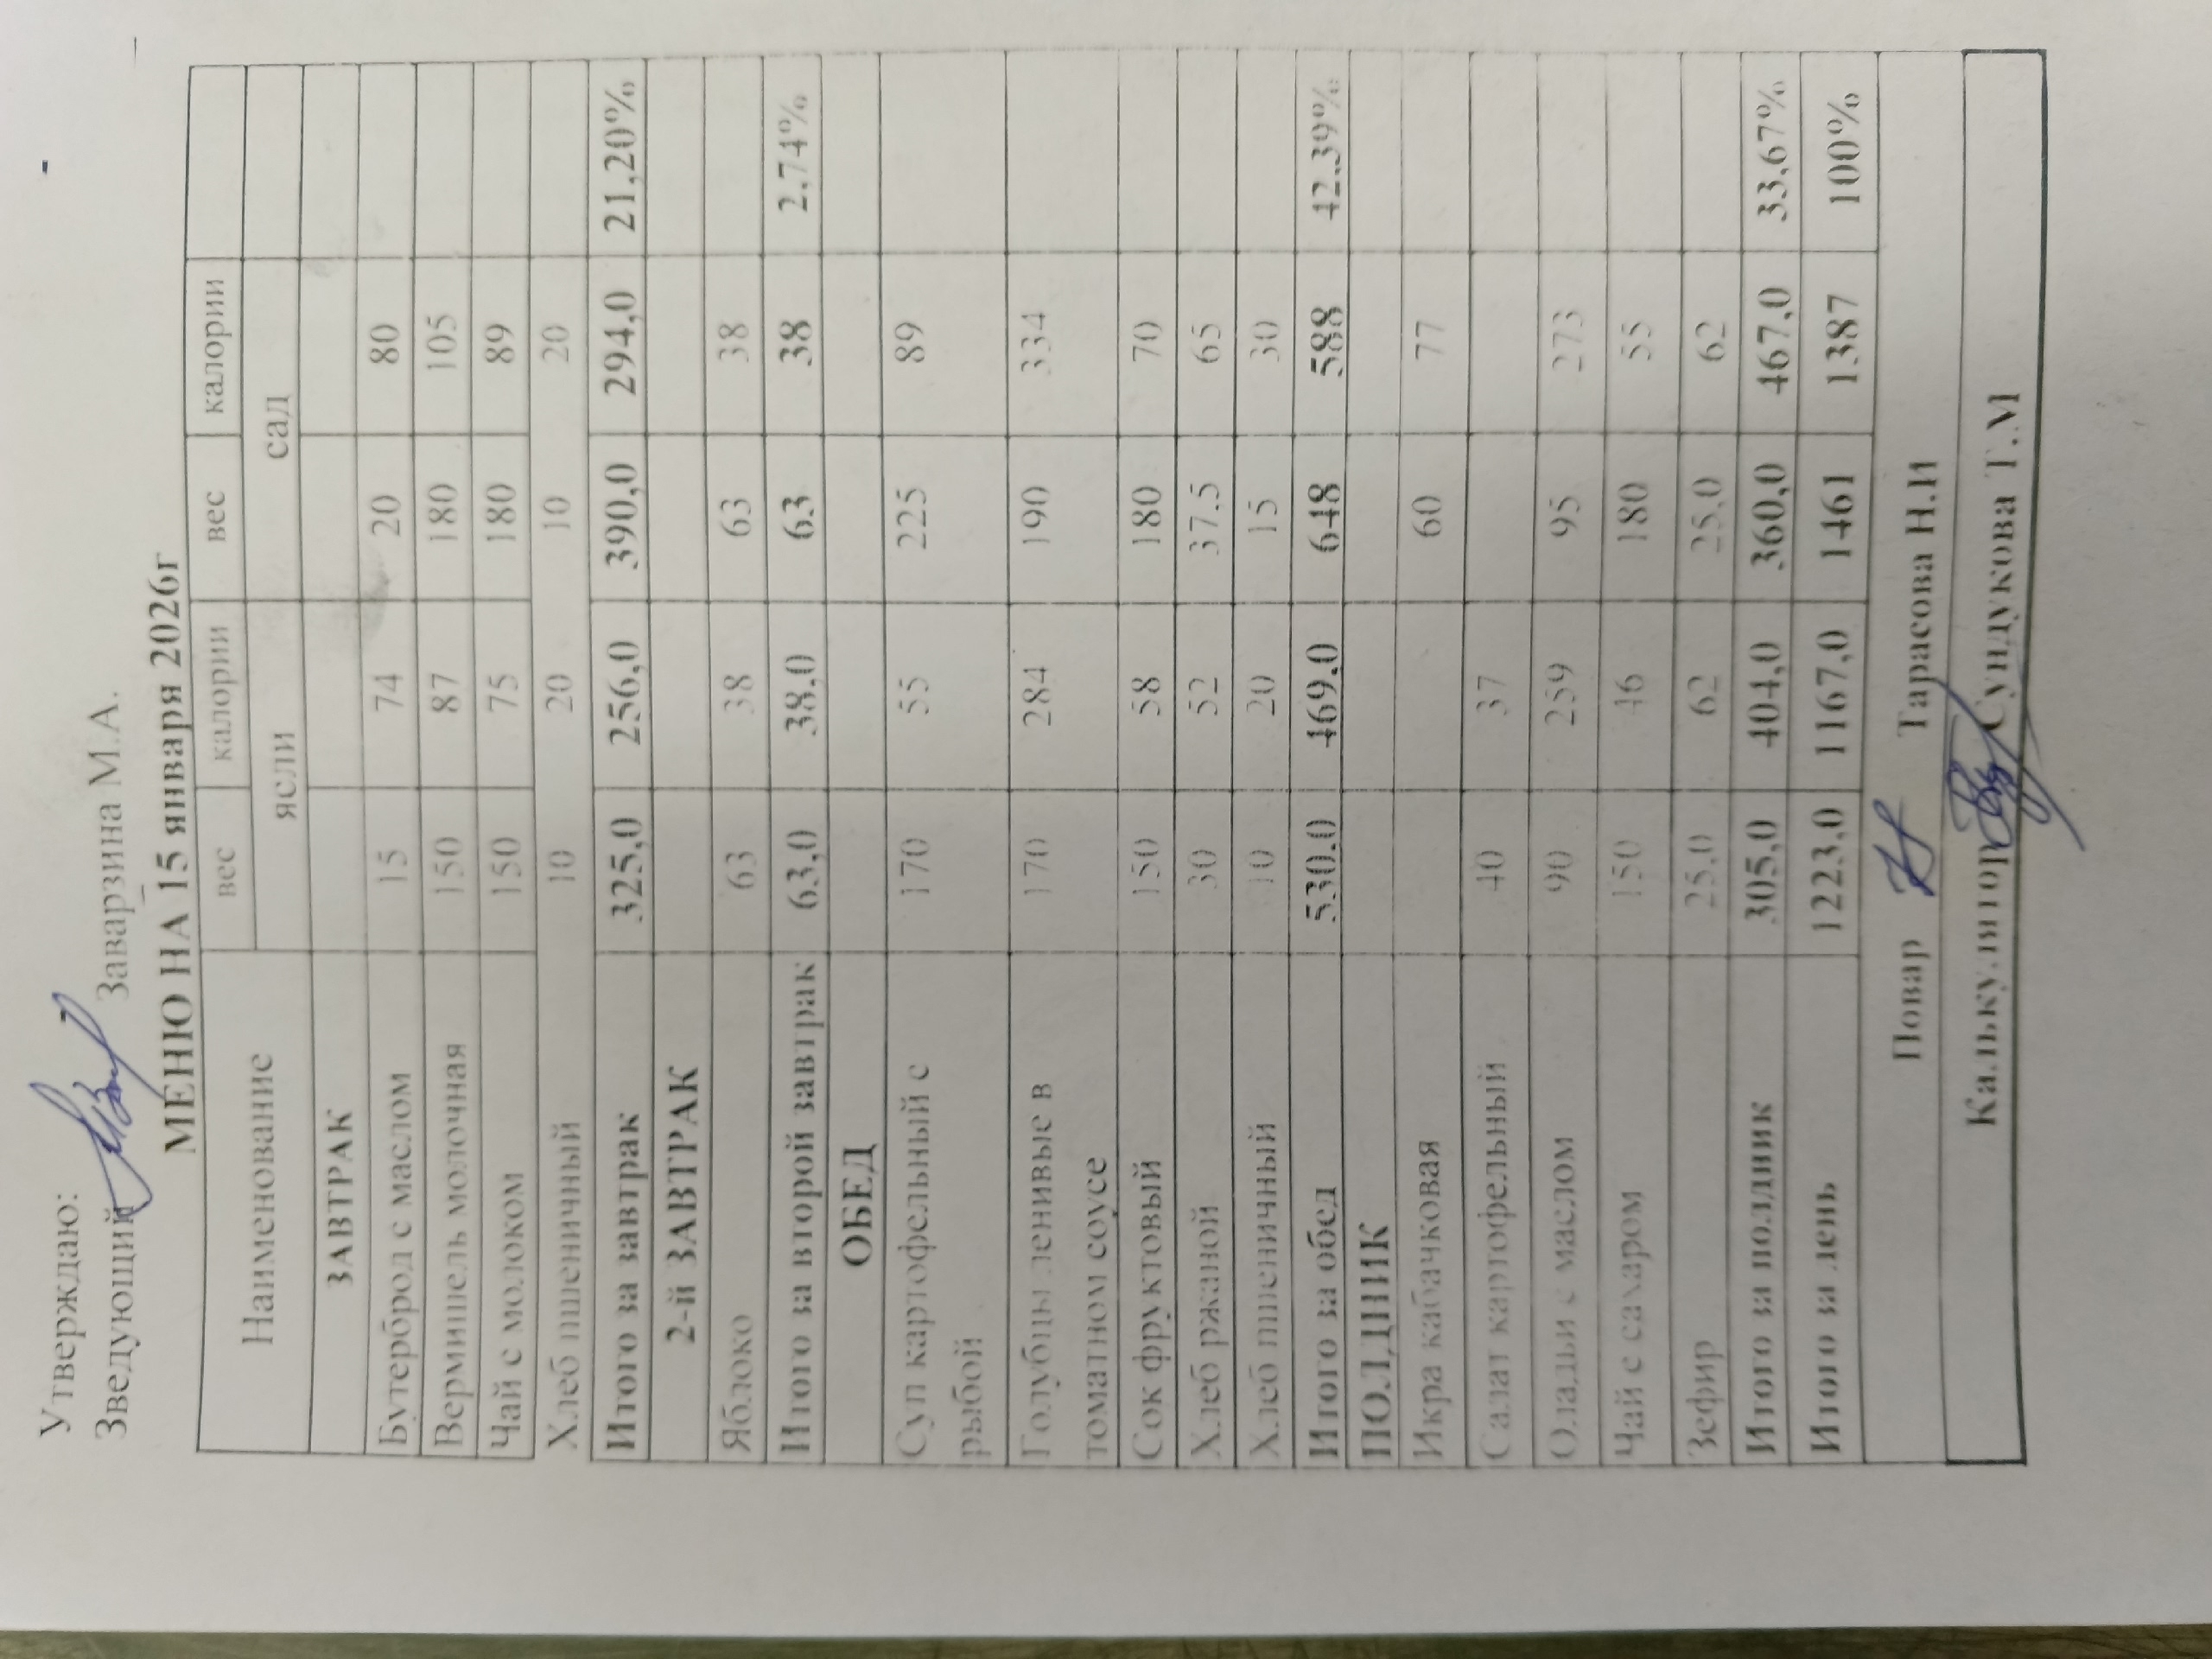 Утверждаю:
Зведующий Заварзина М.А.
МЕНЮ НА 15 января 2026г
Наименование вес калории вес калории
ясли сад
ЗАВТРАК
Бутерброд с маслом 15 74 20 80
Вермишель молочная 150 87 180 105
Чай с молоком 150 75 180 89
Хлеб пшеничный 10 20 10 20
Итого за завтрак 325,0 256,0 390,0 294,0 21,20%
2-й ЗАВТРАК
Яблоко 63 38 63 38
Итого за второй завтрак 63,0 38,0 63 38 2,74%
ОБЕД
Суп картофельный с 170 55 225 89
рыбой
Голубцы ленивые в 170 284 190 334
томатном соусе
Сок фруктовый 150 58 180 70
Хлеб ржаной 30 52 37,5 65
Хлеб пшеничный 10 20 15 30
Итого за обед 530,0 469,0 648 588 42,39%
ПОЛДНИК
Икра кабачковая 60 77
Салат картофельный 40 37
Оладьи с маслом 90 259 95 273
Чай с сахаром 150 46 180 55
Зефир 25,0 62 25,0 62
Итого за полдник 305,0 404,0 360,0 467,0 33,67%
Итого за день 1223,0 1167,0 1461 1387 100%
Повар Тарасова Н.И
Калькулятор Сундукова Т.М